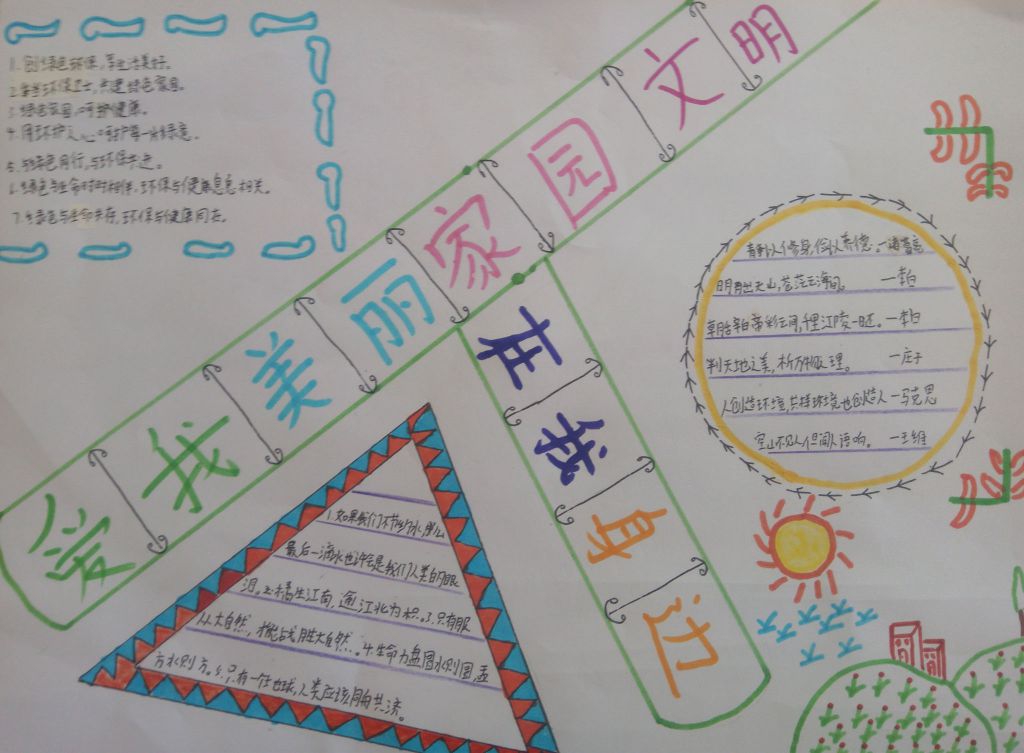 1.创绿色环保,享生活美好。
2.争当环保卫士,共建绿色家园。
3.绿色家园,呵护健康。
5.与绿色同行,与环保为伍。
6.绿色与生命时时相伴,环保与健康息息相关。
7.绿色与生命共存,环保与健康同在。
爱我美丽家园文明
在我身边
静以修身,俭以养德。—诸葛亮
明月出天山,苍茫云海间。 —李白
朝辞白帝彩云间,千里江陵一日还。—李白
判天地之美,析万物之理。 —庄子
人创造环境,共样环境也创造人—马克思
空山不见人但闻人语响。 —王维
1.如果我们不节约水,那么
最后一滴水也许会是我们人类的眼
泪。2.橘生江南,逾江北为枳。3.只有服
从大自然,才能战胜大自然。4.生命力盘圆水则圆,盂
方水则方。5.只有一个地球,人类应该同舟共济。